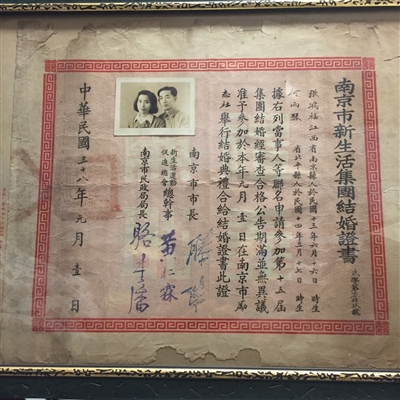 南京市新生活集團結婚證書
張鴻福江西省南京縣人於民國十三年六月十六日 時生
省北平縣人於民國十四年三月十七日 時生
據右列當事人等聯名申請參加第十三屆
集團結婚經審查合格公告期滿並無異議
准予參加於本年元月壹日在南京市勵
志社舉行結婚典禮合給結婚證書此證
南京市市長 滕傑
新生活運動促進總會總幹事 黃仁霖
南京市民政局局長 駱
中華民國三十八年元月壹日